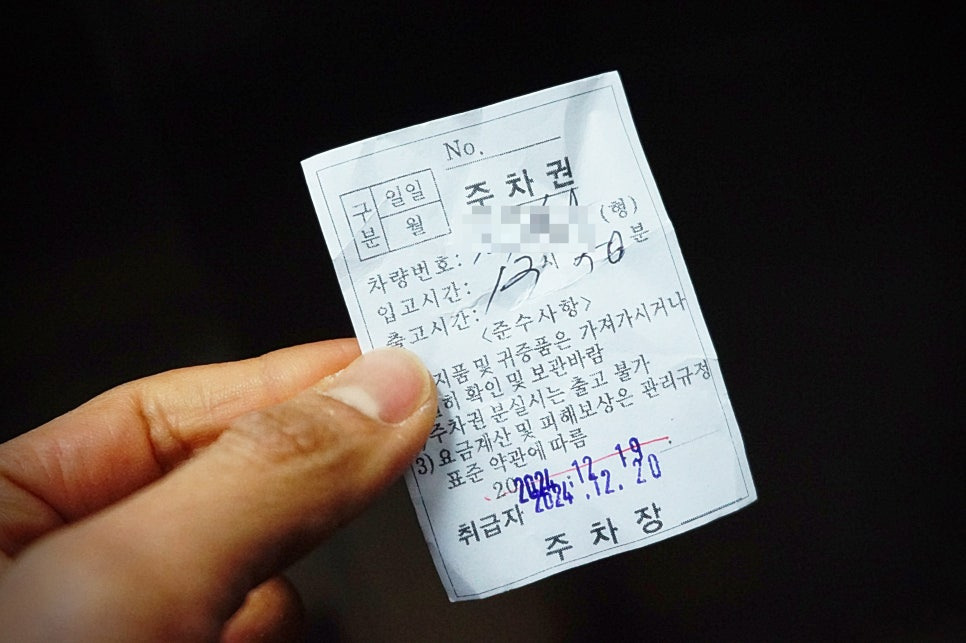 No.
주차권
구분
일일
월
(형)
차량번호:
입고시간: 시 분
출고시간:
<준수사항>
지품 및 귀중품은 가져가시거나
히 확인 및 보관바람
주차권 분실시는 출고 불가
3) 요금계산 및 피해보상은 관리규정
표준 약관에 따름
20
2024.12.19
2024.12.20
취급자
주차장